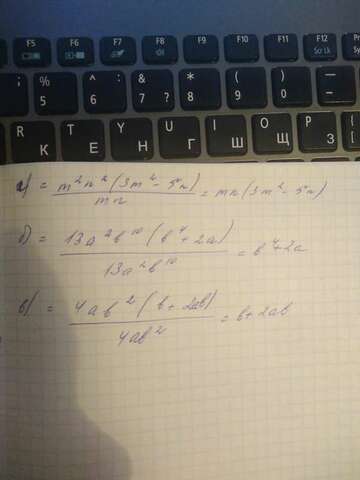 F5 F6 F7 F8 F9 F10 F11 F12
So Lk
% 5 ^ : 6 & ? 7 * 8 ( 9 ) 0 _ -
R К T Е Y Н U Г I Ш O Щ P З
а) = m²n²(3m² - 5n) / mn = mn(3m² - 5n)
б) = 13a²b¹⁰(b⁴ + 2a) / 13a²b¹⁰ = b⁴ + 2a
в) = 4ab²(b + 2ab) / 4ab² = b + 2ab